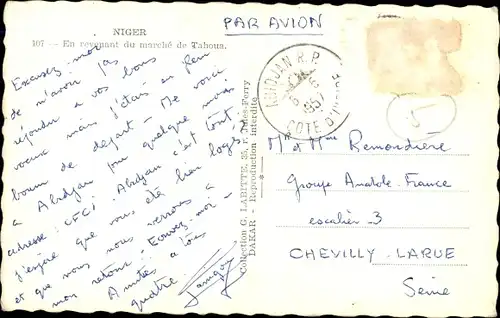 NIGER
107 - En revenant du marché de Tahoua.
PAR AVION
Excusez-moi
de n'avoir pas
répondu à vos bons
voeux mais j'étais en plein
boum de départ - Me voici
à Abidjan pour quelques mois
adresse : CFCI. Abidjan c'est tout.
J'espère que vous été bien logés
et que nous nous verrons à
mon retour. Ecrivez-moi -
Amitiés à tous
quatre.
Collection G. LABITTE, 35, r. Jules-Ferry
DAKAR - Reproduction interdite
ABIDJAN R.P.
1957
COTE D'IVOIRE
5
Mr et Mme Remondière
Groupe Anatole-France
escalier 3
CHEVILLY-LARUE
Seine